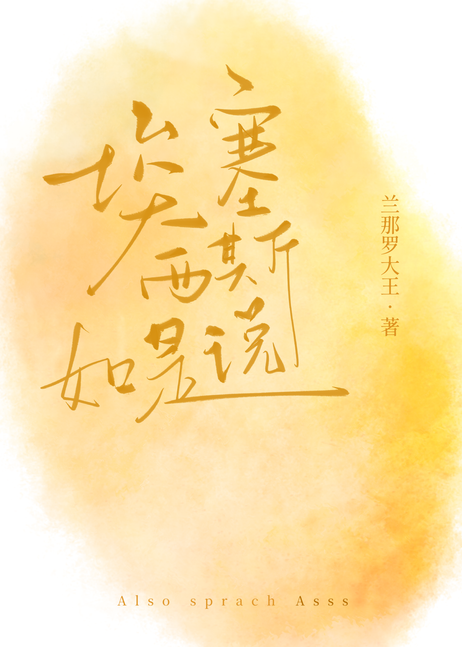 埃塞
西斯
如是说
兰那罗大王·著
Also sprach Asss